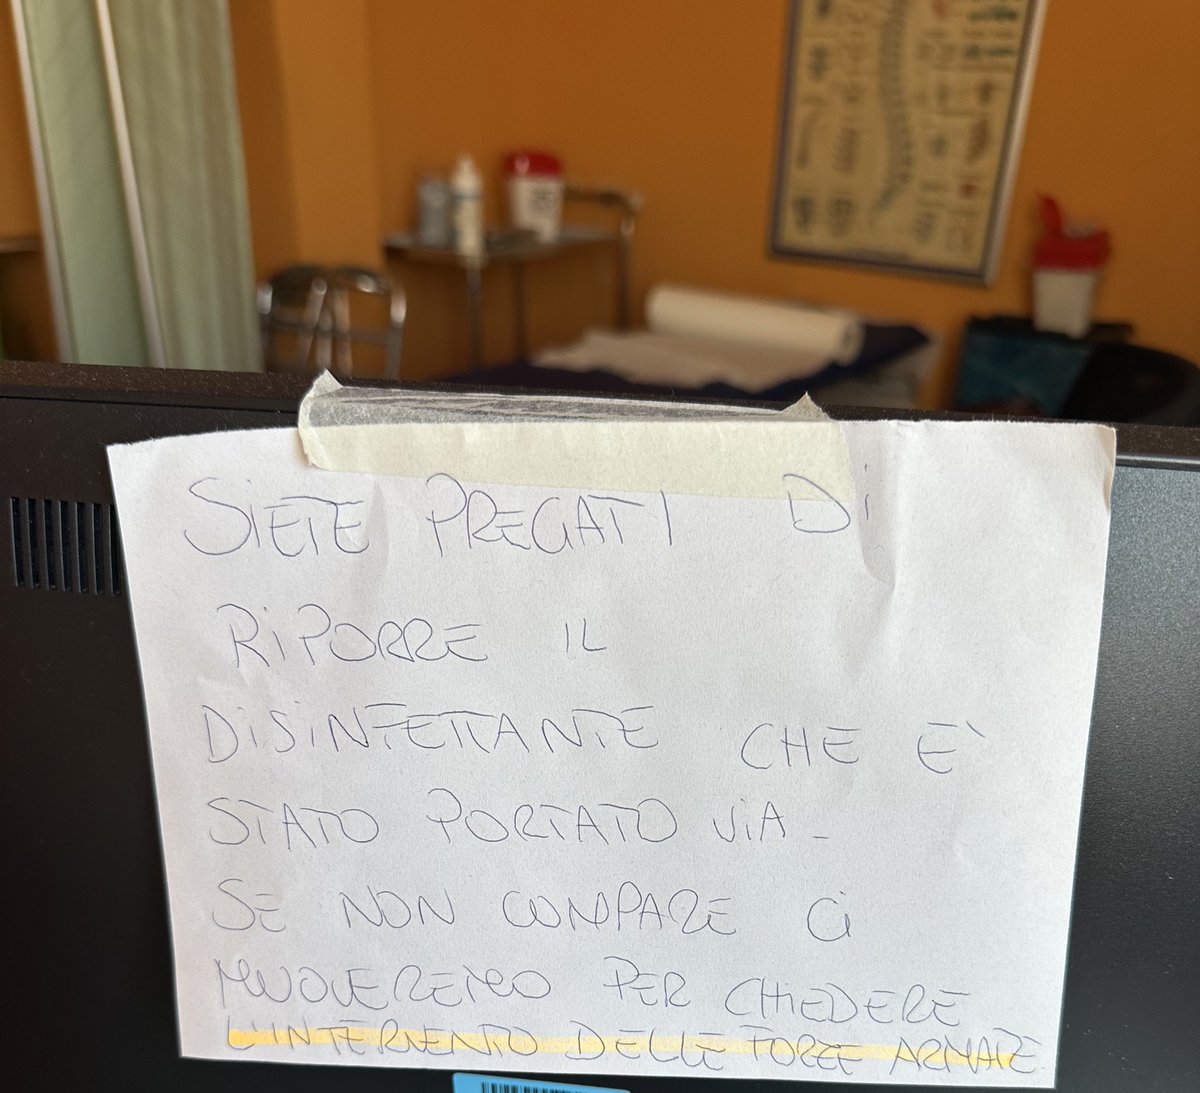 SIETE PREGATI DI
RIPORRE IL
DISINFETTANTE CHE E'
STATO PORTATO VIA -
SE NON COMPARE CI
MUOVEREMO PER CHIEDERE
L'INTERVENTO DELLE FORZE ARMATE